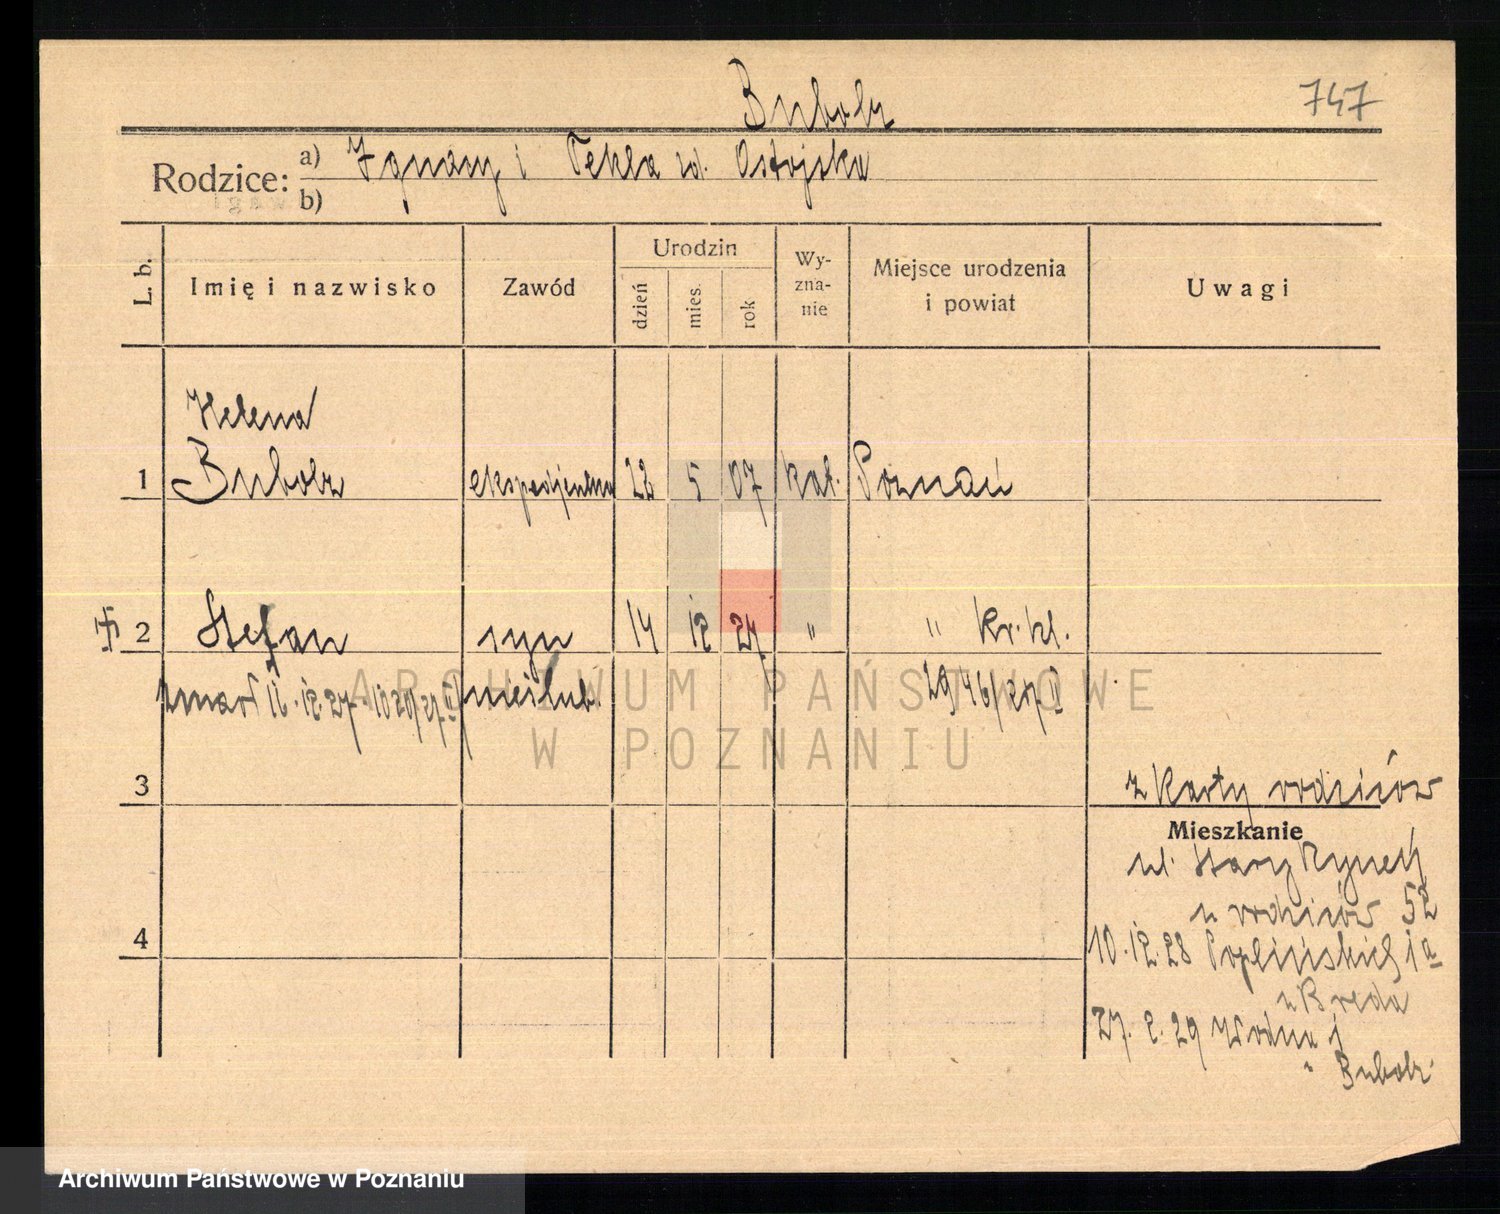 Bubolz
747
Rodzice: a) Ignacy i Tekla zd. Ostojska
b)
L. b. Imię i nazwisko Zawód Urodzin dzień mies. rok Wyznanie Miejsce urodzenia i powiat Uwagi
Helena
1 Bubolz ekspedjentka 22 5 07 kat. Poznań
2 Stefan syn 14 12 27 " " kr. kl.
zmarł nieślub. 2946/27 II
3
z karty rodziców
Mieszkanie
ul. Stary Rynek
u rodziców 52
4
10.12.28 Poplińskich 1a
u Breda
27. 2. 29 Wodna
" Bubolz
ARCHIWUM PAŃSTWOWE
W POZNANIU
Archiwum Państwowe w Poznaniu